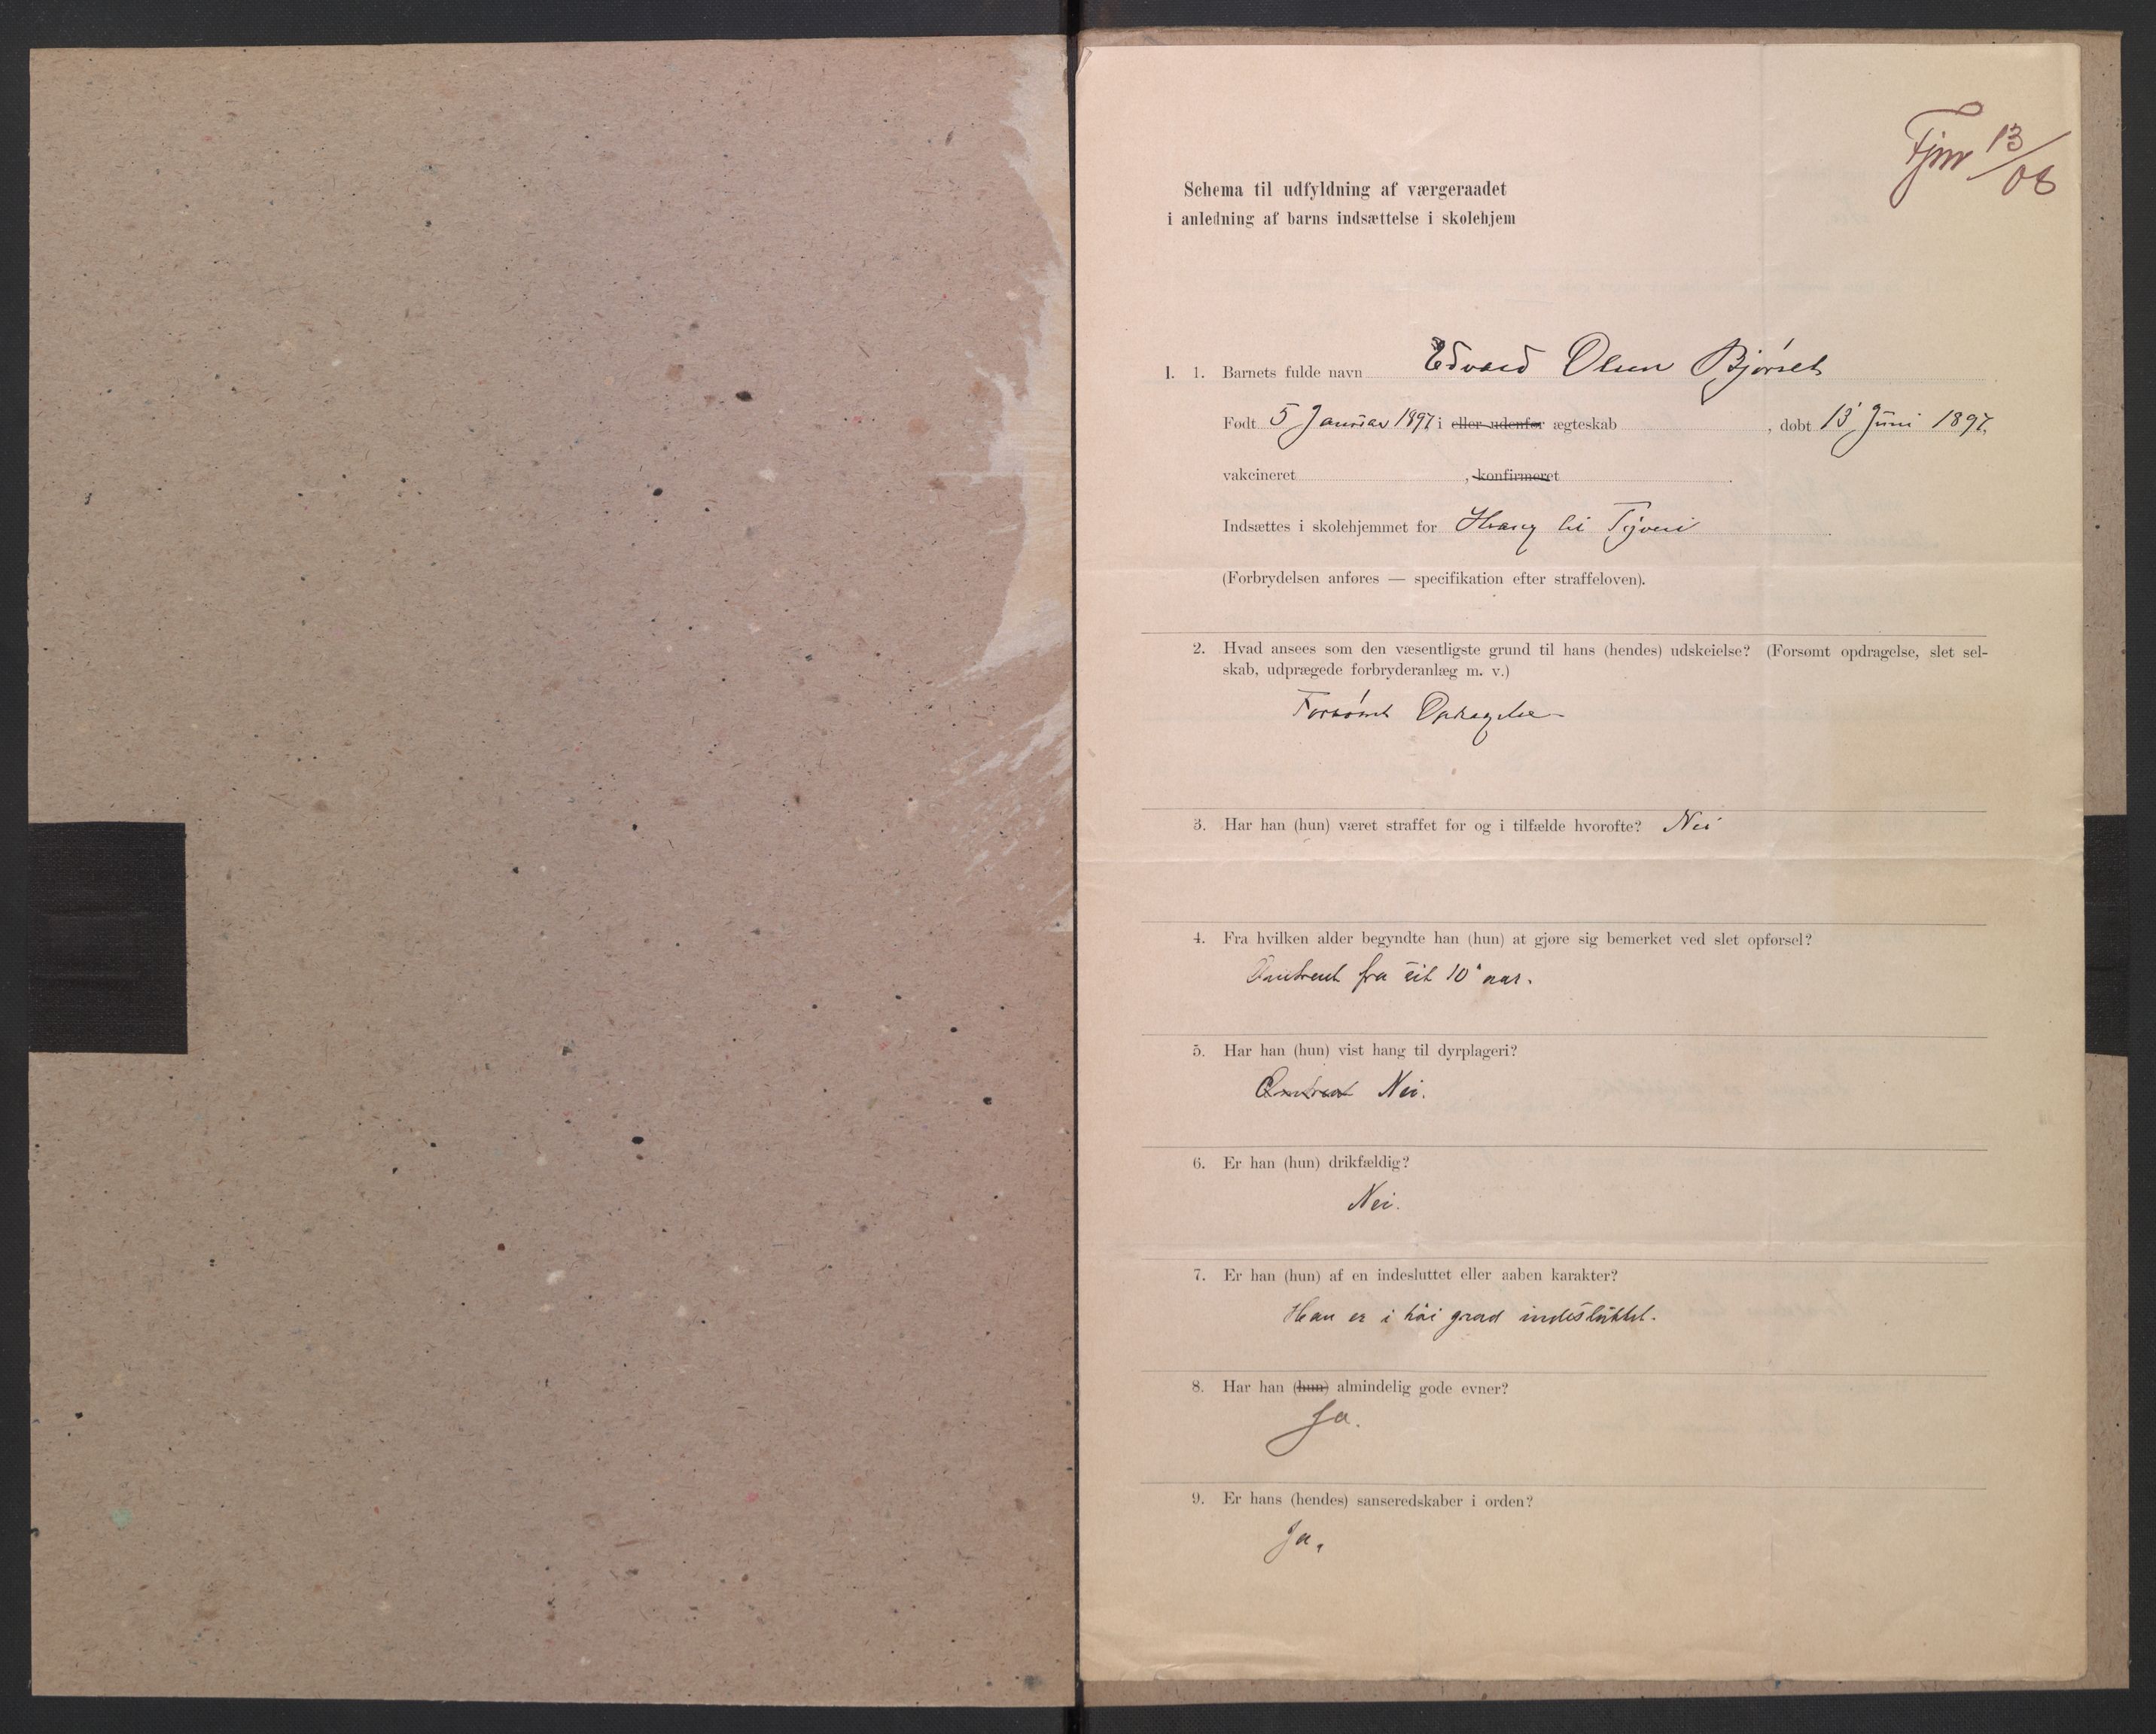 Fjnr 13/08
Schema til udfyldning af værgeraadet
i anledning af barns indsættelse i skolehjem
I. 1. Barnets fulde navn Edvard Olsen Bjørset
Født 5 Januar 1897 i eller udenfor ægteskab , døbt 13 Juni 1897.
vakcineret , konfirmeret .
Indsættes i skolehjemmet for Hang til Tyveri .
(Forbrydelsen anføres — specifikation efter straffeloven).
2. Hvad ansees som den væsentligste grund til hans (hendes) udskeielse? (Forsømt opdragelse, slet sel-
skab, udprægede forbryderanlæg m. v.)
Forsømt Opdragelse
3. Har han (hun) været straffet før og i tilfælde hvorofte? Nei
4. Fra hvilken alder begyndte han (hun) at gjøre sig bemerket ved slet opførsel?
Omtrent fra sit 10' aar.
5. Har han (hun) vist hang til dyrplageri?
Omtrent Nei.
6. Er han (hun) drikfældig?
Nei.
7. Er han (hun) af en indesluttet eller aaben karakter?
Han er i høi grad indesluttet.
8. Har han (hun) almindelig gode evner?
Ja.
9. Er hans (hendes) sanseredskaber i orden?
Ja.